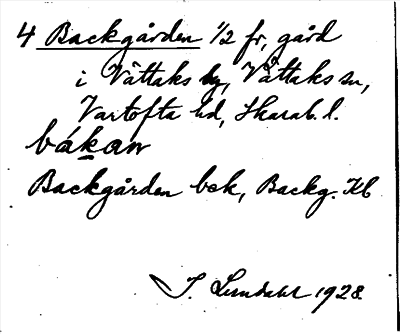 4 Backgården 1/2 fr, gård
i Vättaks by, Vättaks sn,
Vartofta hd, Skarab. l.
bákan
Backgården bek, Backg. Kb
J. Lundahl 1928